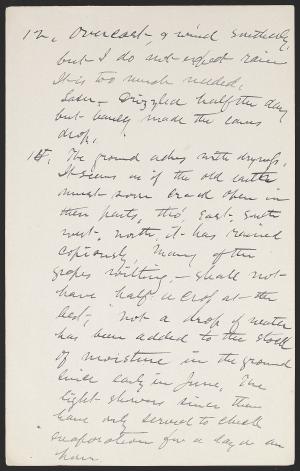 12. Overcast, & wind southerly,
but I do not expect rain
It is too much needed.
Later. Drizzled half the day
but barely made the eaves
drop.
15. The ground aches with dryness.
It seems as if the old earth
must soon crack open in
these parts, tho' East, South
west, north, it has rained
copiously, Many of the
grapes wilting, — shall not
have half a crop at the
best, not a drop of water
has been added to the stock
of moisture in the ground
since early in June, The
light showers since then
have only served to check
evaporation for a day or an
hour.